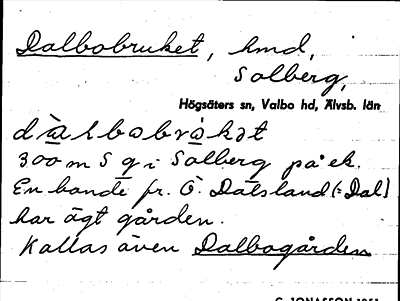 Dalbobruket, hmd,
Solberg,
Högsäters sn, Valbo hd, Älvsb. län
300 m S g i Solberg på ek.
En bonde fr. Ö. Dalsland (= Dal)
har ägt gården.
Kallas även Dalbogården
G. JONASSON 1951